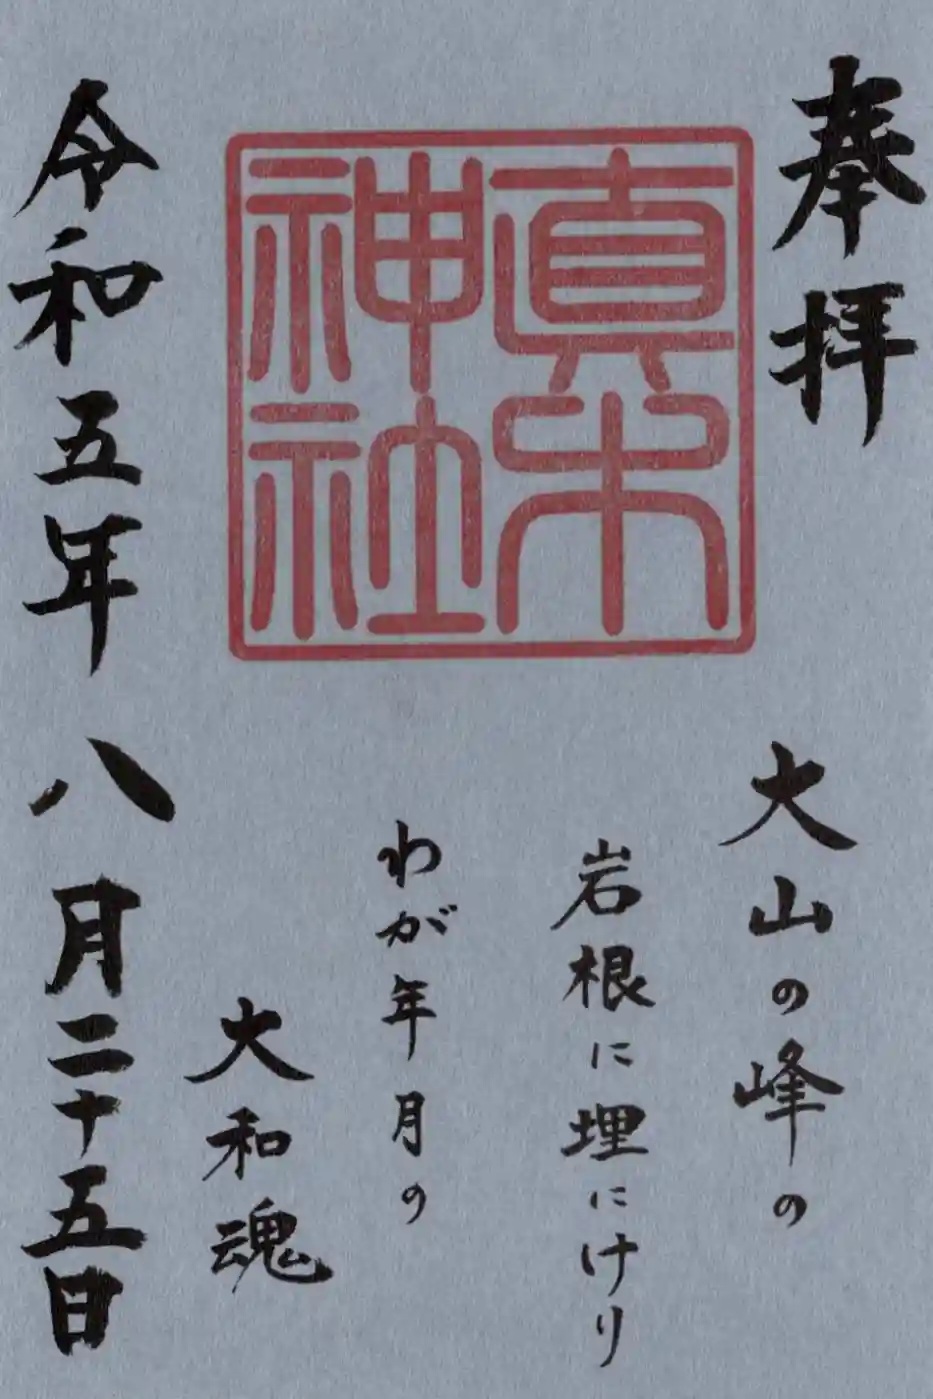 奉拝
真木
神社
大山の峰の
岩根に埋にけり
わが年月の
大和魂
令和五年八月二十五日